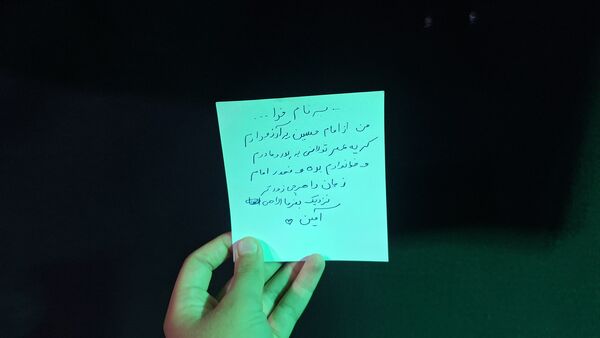 .. به نام خدا ...
من از امام حسین یه آرزو دارم
که یه عمر طولانی به پدر و مادرم
و خانوادم بده و ظهور امام
زمان را هرچی زودتر
نزدیک بفرما الاهی
آمین ♥